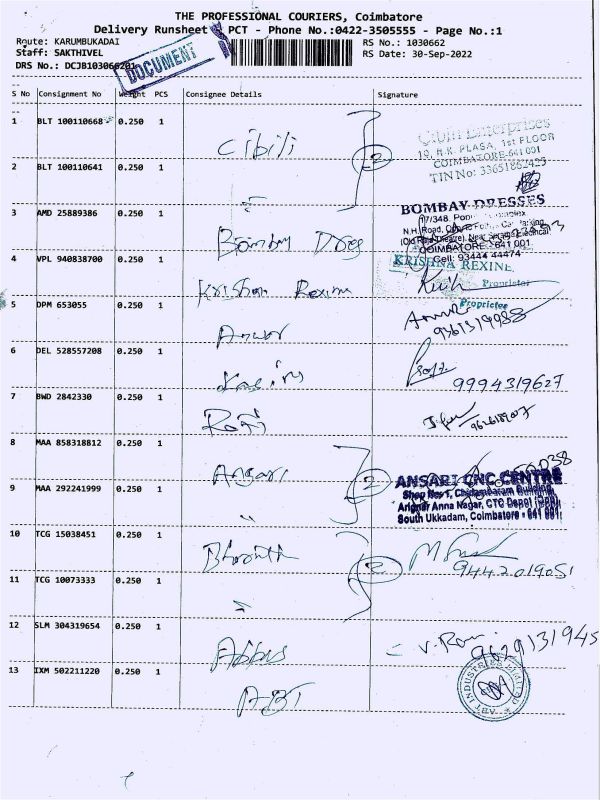 THE PROFESSIONAL COURIERS, Coimbatore
Delivery Runsheet PCT - Phone No.:0422-3505555 - Page No.:1
Route: KARUMBUKADAI RS No.: 1030662
Staff: SAKTHIVEL RS Date: 30-Sep-2022
DRS No.: DCJB103066201
DOCUMENT
S No Consignment No Weight PCS Consignee Details Signature
1 BLT 100110668 0.250 1 Cibili 2
Cibili Enterprises
19, H.R. PLASA, 1st FLOOR
COIMBATORE-641 001
TIN No: 33651862425
2 BLT 100110641 0.250 1 "
3 AMD 25889386 0.250 1 Bombay
BOMBAY DRESSES
COIMBATORE - 641 001
Cell: 93444 44474
4 VPL 940838700 0.250 1 Krishna Rexine
KRISHNA REXINE
Proprietor
5 DPM 653055 0.250 1 Anwar
Proprietor
6 DEL 528557208 0.250 1
9994319627
7 BWD 2842330 0.250 1 Rafi
8 MAA 858318812 0.250 1 Ansari 2
ANSARI CNC CENTRE
Shop No. 1, Chidambaram Building,
Arignar Anna Nagar, CTC Depot (Opp)
South Ukkadam, Coimbatore - 641 001
9 MAA 292241999 0.250 1 "
10 TCG 15038451 0.250 1 Bharath 2
9442019051
11 TCG 10073333 0.250 1 "
12 SLM 304319654 0.250 1 Abbas
9629131945
13 IXM 502211220 0.250 1 ABT
ABT INDUSTRIES LIMITED